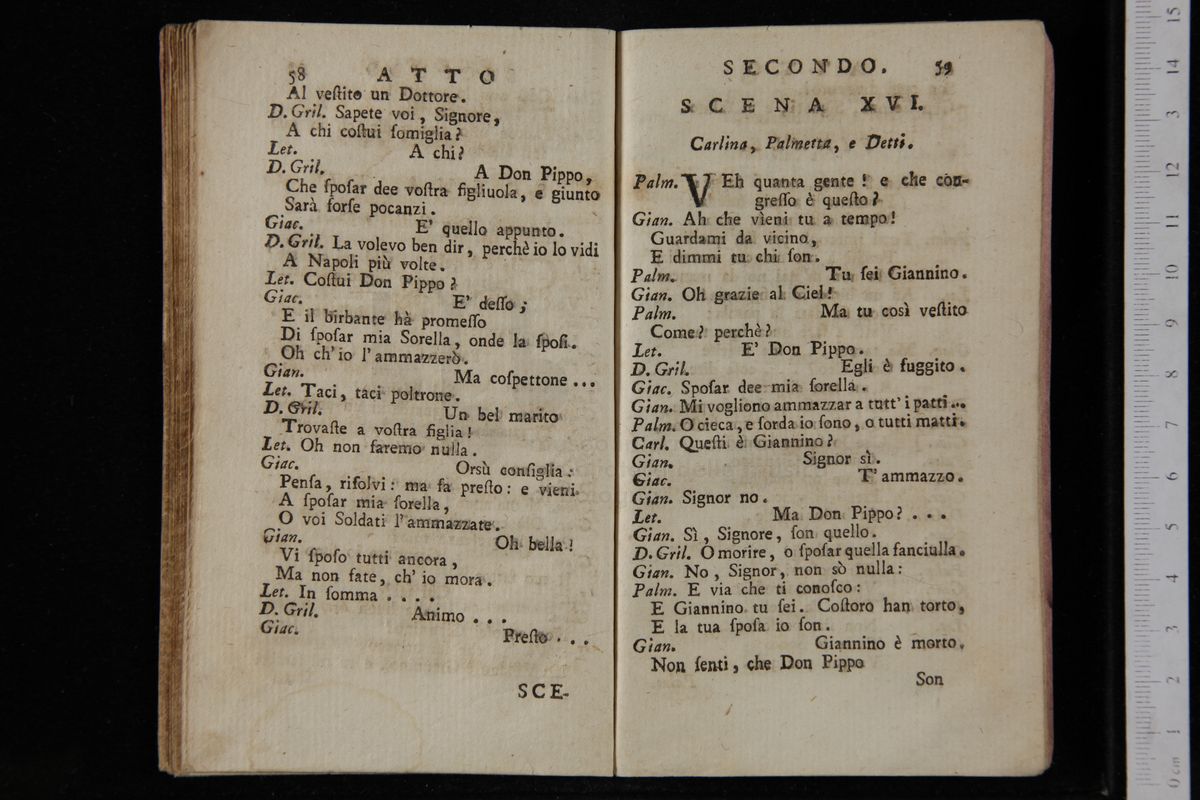 58 ATTO
Al veſtito un Dottore.
D. Gril. Sapete voi, Signore,
A chi coſtui ſomiglia?
Let. A chi?
D. Gril. A Don Pippo,
Che ſpoſar dee voſtra figliuola, e giunto
Sarà forſe pocanzi.
Giac. E' quello appunto.
D. Gril. La volevo ben dir, perchè io lo vidi
A Napoli più volte.
Let. Coſtui Don Pippo?
Giac. E' deſſo;
E il birbante hà promeſſo
Di ſpoſar mia Sorella, onde la ſpoſi.
Oh ch' io l' ammazzerò.
Gian. Ma coſpettone...
Let. Taci, taci poltrone.
D. Gril. Un bel marito
Trovaſte a voſtra figlia!
Let. Oh non faremo nulla.
Giac. Orsù conſiglia:
Penſa, riſolvi: ma fa preſto: e vieni
A ſpoſar mia ſorella,
O voi Soldati l' ammazzate.
Gian. Oh bella!
Vi ſpoſo tutti ancora,
Ma non fate, ch' io mora.
Let. In ſomma....
D. Gril. Animo...
Giac. Preſto...
SCE-
SECONDO. 59
SCENA XVI.
Carlina, Palmetta, e Detti.
Palm. VEh quanta gente! e che con-
greſſo è queſto?
Gian. Ah che vieni tu a tempo!
Guardami da vicino,
E dimmi tu chi ſon.
Palm. Tu ſei Giannino.
Gian. Oh grazie al Ciel!
Palm. Ma tu così veſtito
Come? perchè?
Let. E' Don Pippo.
D. Gril. Egli è fuggito.
Giac. Spoſar dee mia ſorella.
Gian. Mi vogliono ammazzar a tutt' i patti...
Palm. O cieca, e ſorda io ſono, o tutti matti.
Carl. Queſti è Giannino?
Gian. Signor sì.
Giac. T' ammazzo.
Gian. Signor no.
Let. Ma Don Pippo?...
Gian. Sì, Signore, ſon quello.
D. Gril. O morire, o ſpoſar quella fanciulla.
Gian. No, Signor, non sò nulla:
Palm. E via che ti conoſco:
E Giannino tu ſei. Coſtoro han torto,
E la tua ſpoſa io ſon.
Gian. Giannino è morto.
Non ſenti, che Don Pippo
Son
0 cm 1 2 3 4 5 6 7 8 9 10 11 12 13 14 15